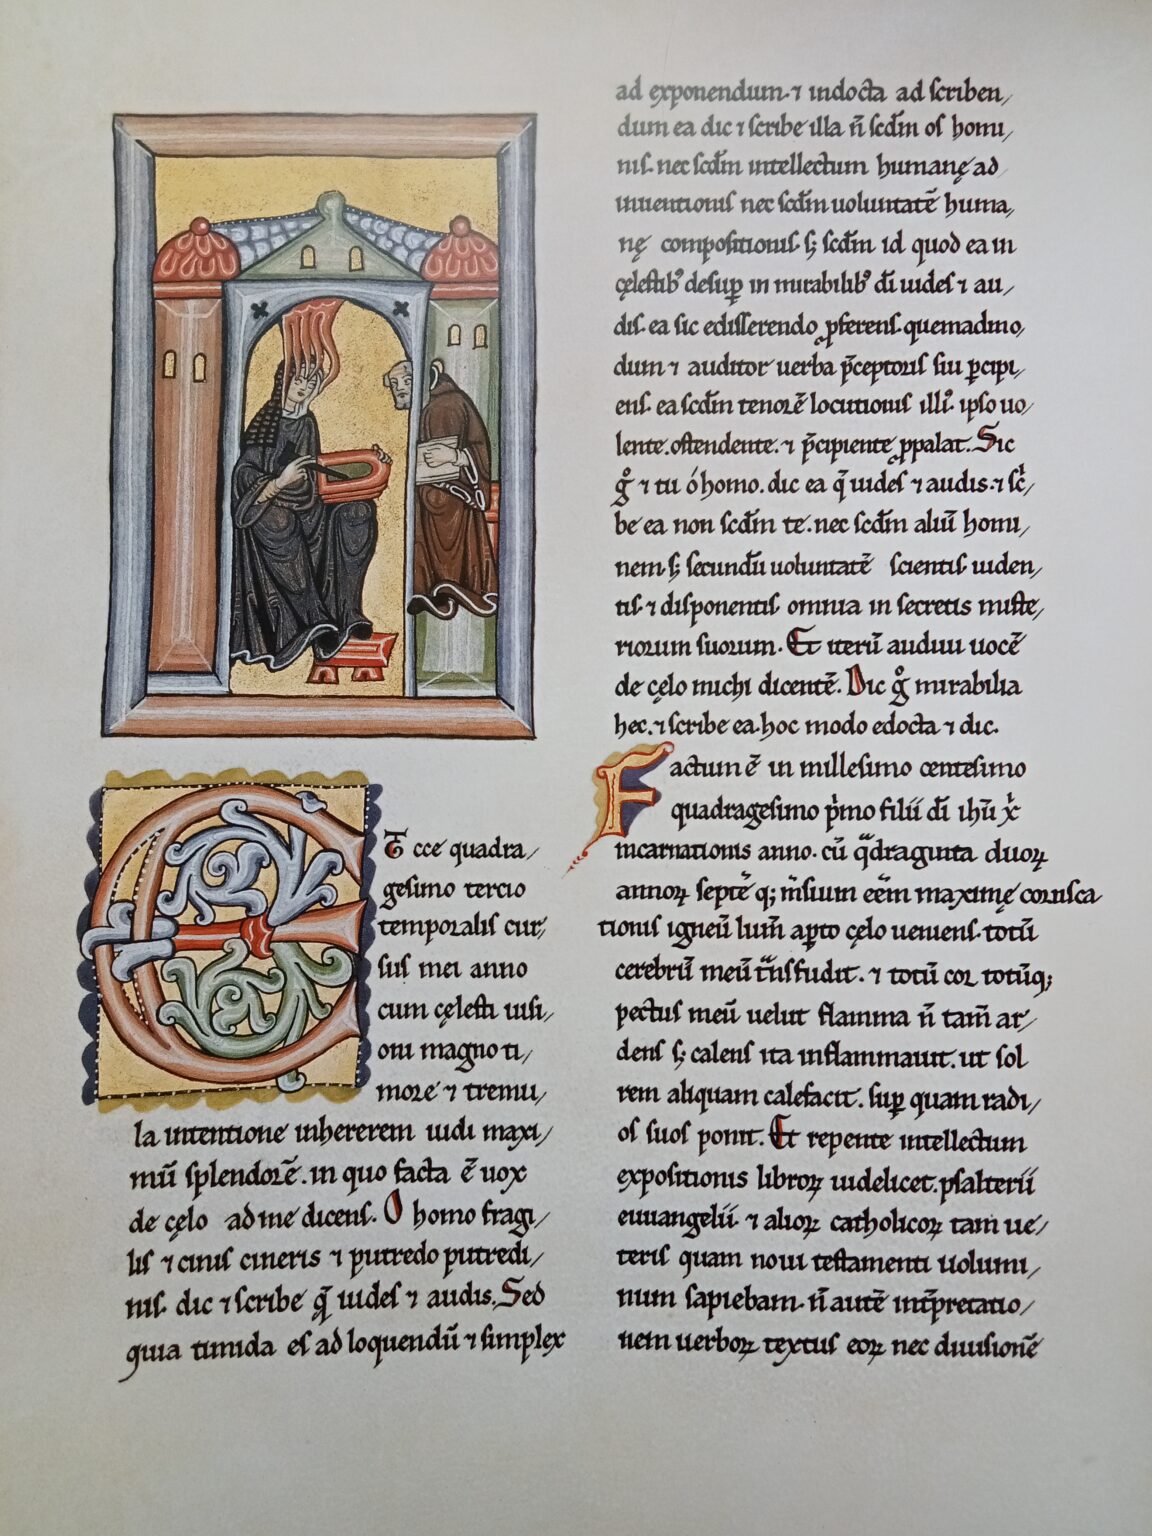 Et cce quadra/
gesimo tercio
temporalis cur/
sus mei anno
cum cęlesti uisi/
oni magno ti/
more ⁊ tremu/
la intentione inhererem uidi maxi/
mū splendorē. in quo facta ē uox
de cęlo ad me dicens. O homo fragi/
lis ⁊ cinis cineris ⁊ putredo putredi/
nis. dic ⁊ scribe q̄ uides ⁊ audis. Sed
quia timida es ad loquendū ⁊ simplex
ad exponendum ⁊ indocta ad scriben/
dum ea dic ⁊ scribe illa n̄ scd̄m os homi/
nis. nec scd̄m intellectum humanę ad
inuentionis nec scd̄m uoluntatē huma/
nę compositionis. s; scd̄m id quod ea in
cęlestib᾿ desup̱ in mirabilib᾿ dī uides ⁊ au/
dis. ea sic edisserendo ꝓferens. quemadmo/
dum ⁊ auditor uerba p̄ceptoris sui ꝑcipi/
ens. ea scd̄m tenorē locutionis illi᾿. ipso uo/
lente. ostendente. ⁊ p̄cipiente ꝓpalat. Sic
gͦ ⁊ tu ó homo. dic ea q̄ uides ⁊ audis. ⁊ scͥ/
be ea non scd̄m te. nec scd̄m aliū homi/
nem. s; secundū uoluntatē scientis uiden/
tis. ⁊ disponentis omnia in secretis miste/
riorum suorum. Et iterū audiui uocē
de cęlo michi dicentē. Dic gͦ mirabilia
hec. ⁊ scribe ea. hoc modo edocta ⁊ dic.
Factum ē in millesimo centesimo
quadragesimo pͥmo filii dī ih̄u xͥ
incarnationis anno. cū qͣdraginta duoꝝ
annoꝝ septē q; m̄sium eēm maximę corusca
tionis igneū lum̄ apto cęlo ueniens. totū
cerebrū meū tͣnsfudit. ⁊ totū cor totūq;
pectus meū uelut flamma n̄ tam̄ ar/
dens s; calens ita inflammauit. ut sol
rem aliquam calefacit. sup̱ quam radi/
os suos ponit. Et repente intellectum
expositionis libroꝝ uidelicet. psalterii
euuangelii ⁊ alioꝝ catholicoꝝ tam ue/
teris quam noui testamenti uolumi/
num sapiebam. n̄ autē int̄pretatio/
nem uerboꝝ textus eoꝝ nec diuisionē